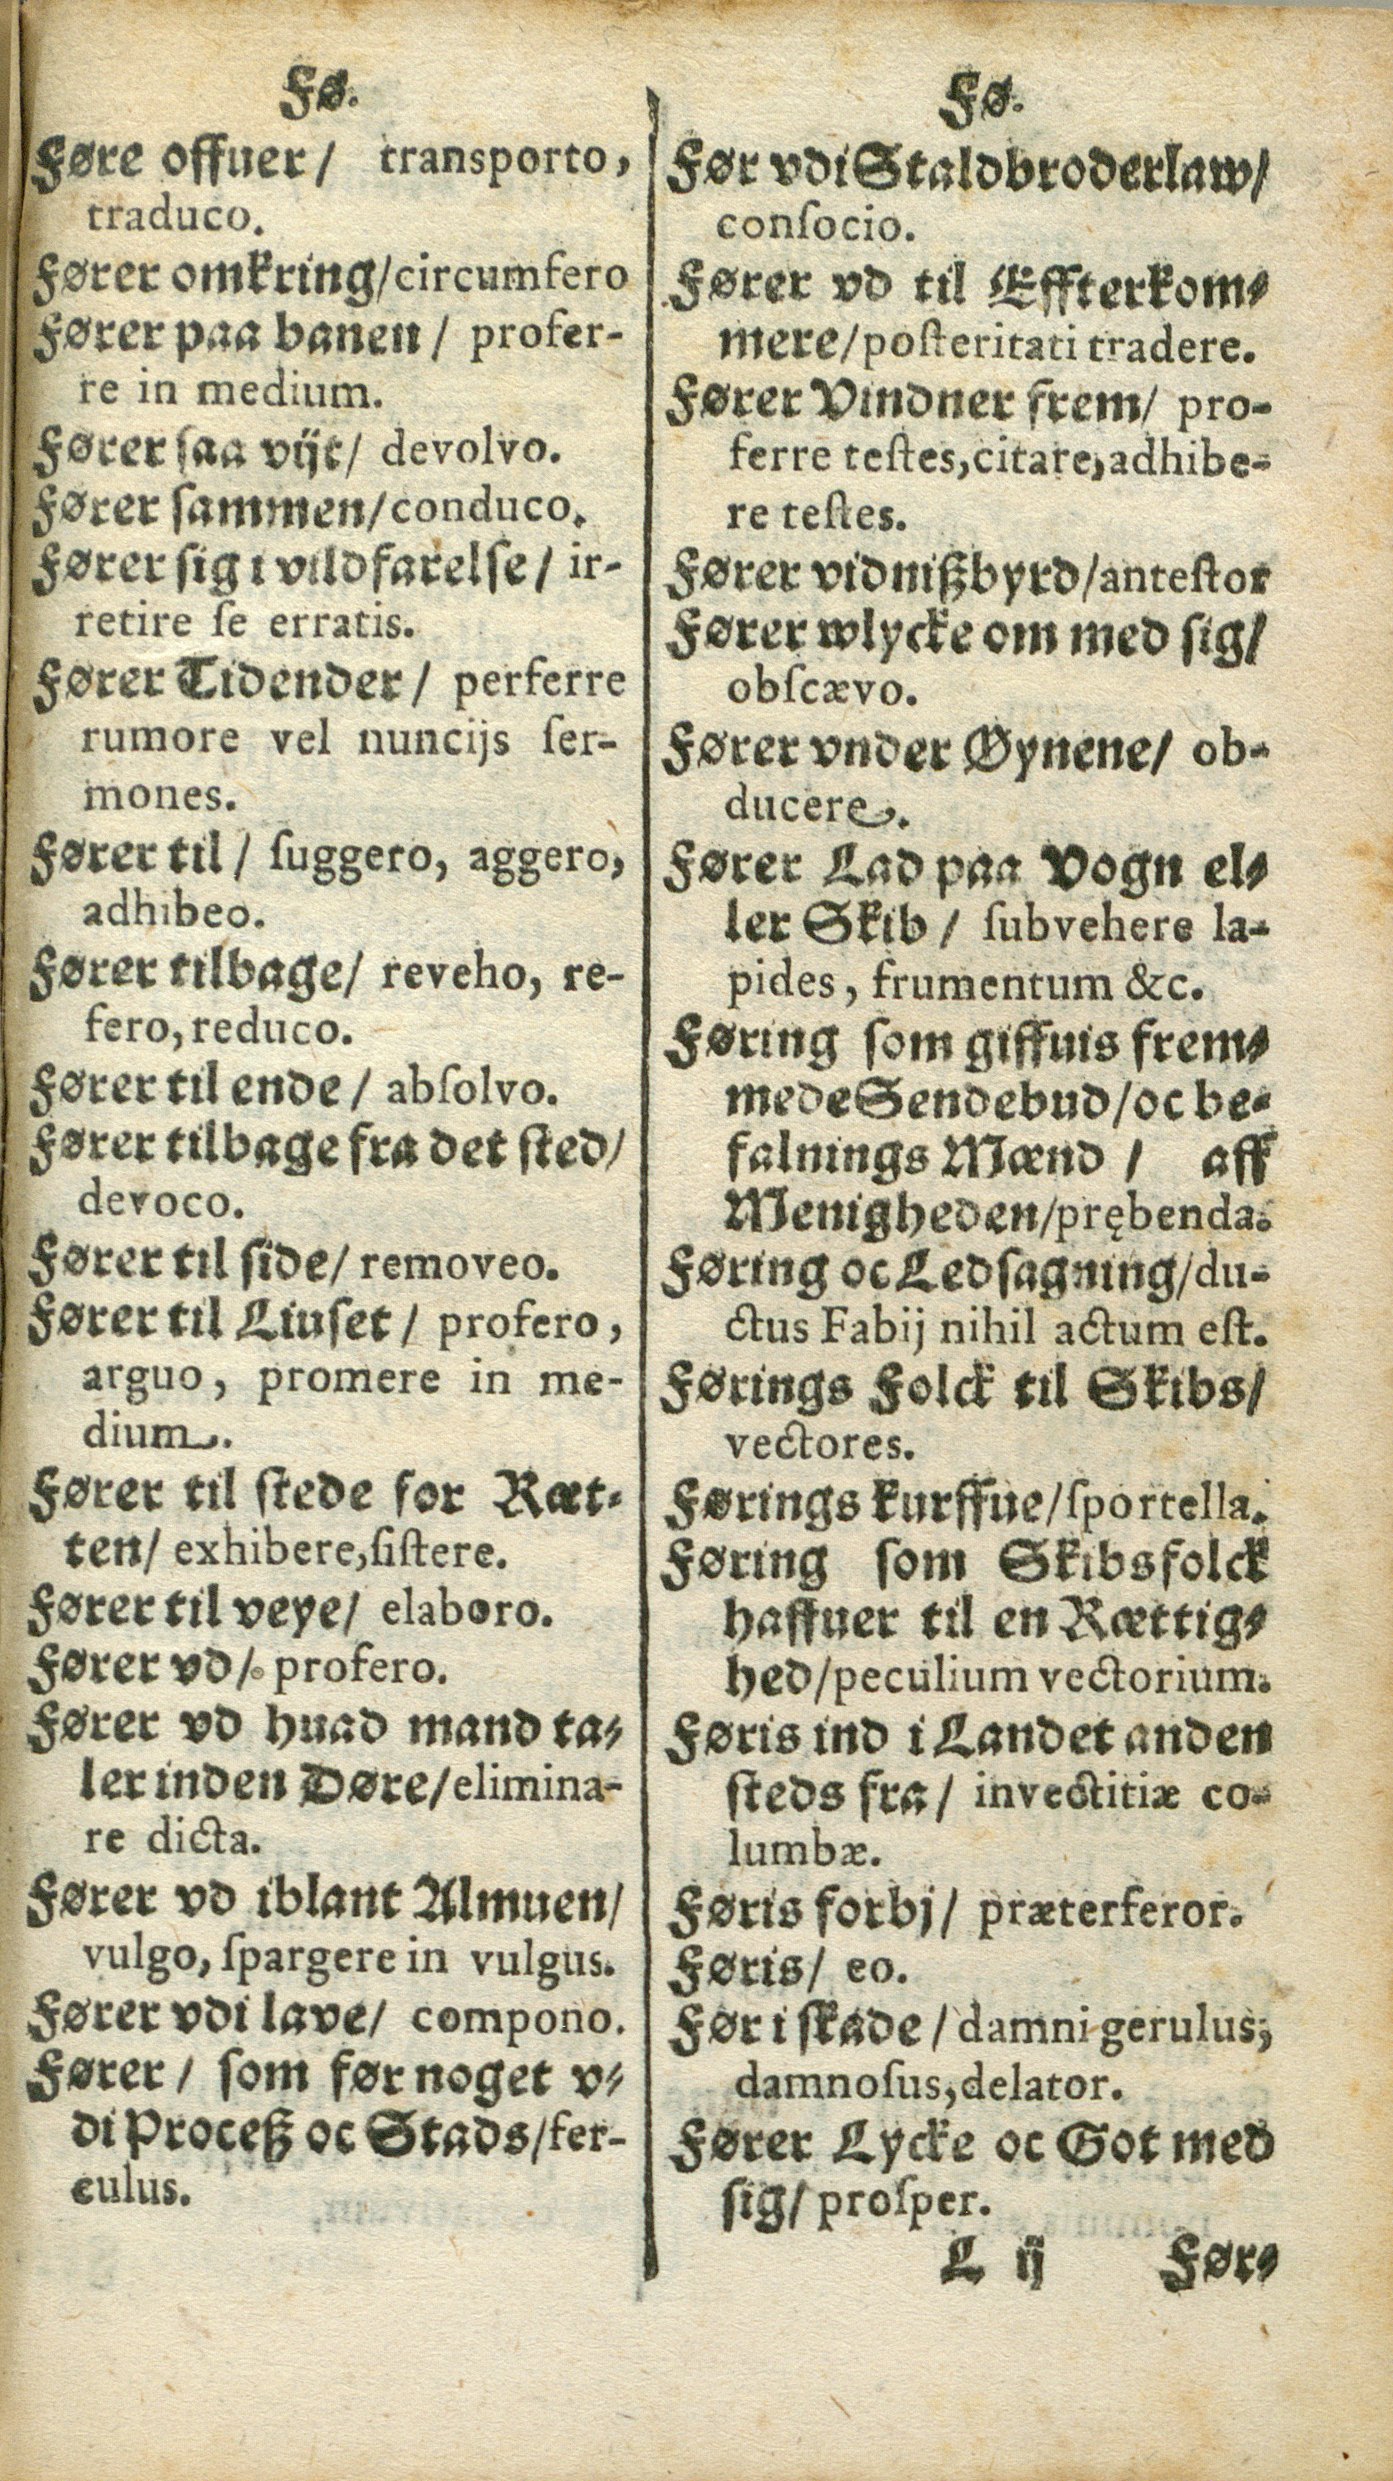 Fø.
Føre offuer/ transporto,
traduco.
Fører omkring/circumfero
Fører paa banen/ profer-
re in medium.
Fører saa vijt/ devolvo.
Fører sammen/conduco.
Fører sig i vildfarelse/ ir-
retire ſe erratis.
Fører Tidender/ perferre
rumore vel nuncijs ſer-
mones.
Fører til/ ſuggero, aggero,
adhibeo.
Fører tilbage/ reveho, re-
fero, reduco.
Fører til ende/ abſolvo.
Fører tilbage fra det ſted/
devoco.
Fører til ſide/ removeo.
Fører til Liuſet/ profero,
arguo, promere in me-
dium.
Fører til ſtede for Ræt-
ten/ exhibere, ſiſtere.
Fører til veye/ elaboro.
Fører vd/ profero.
Fører vd huad mand ta-
ler inden Døre/elimina-
re dicta.
Fører vd iblant Almuen/
vulgo, ſpargere in vulgus.
Fører vdi lave/ compono.
Fører/ ſom før noget v-
di Proceß oc Stads/fer-
culus.
Fø.
Før vdi Staldbroderlaw/
conſocio.
Fører vd til Effterkom-
mere/poſteritati tradere.
Fører Vindner frem/ pro-
ferre teſtes, citare, adhibe-
re teſtes.
Fører vidnißbyrd/anteſtor
Fører wlycke om med ſig/
obſcævo.
Fører vnder Øynene/ ob-
ducere.
Fører Lad paa Vogn el-
ler Skib/ ſubvehere la-
pides, frumentum &c.
Føring ſom giffuis frem-
mede Sendebud/oc be-
falnings Mænd/ aff
Menigheden/prębenda.
Føring oc Ledſagning/du-
ctus Fabij nihil actum eſt.
Førings Folck til Skibs/
vectores.
Førings kurffue/ſportella.
Føring ſom Skibsfolck
haffuer til en Rættig-
hed/peculium vectorium.
Føris ind i Landet anden
ſteds fra/ invectitiæ co-
lumbæ.
Føris forbj/ præterferor.
Føris/ eo.
Før i ſkade/damni gerulus,
damnoſus, delator.
Fører Lycke oc Got med
ſig/ proſper.
L ij Før-